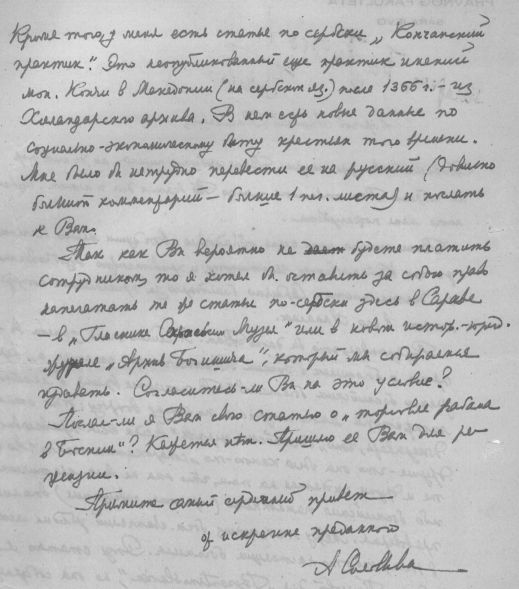 Кроме того, у меня есть статья по сербски „Кончанский
практик“. Это неопубликованный еще практик имений
мон. Кончи в Македонии (на сербском яз.) после 1366 г. – из
Хиландарского архива. В нем есть новые данные по
социально-экономическому быту крестьян того времени.
Мне было бы нетрудно перевести ее на русский (довольно
большой комментарий – больше 1 печ. листа) и послать
к Вам.
Так как Вы вероятно не будете платить
сотрудникам, то я хотел бы оставить за собою право
напечатать те же статьи по-сербски здесь в Сараеве
– в „Гласнике Музея“ или в новом истор.-юрид.
журнале „Архив Богишича“, который мы собираемся
издавать. Согласитесь-ли Вы на это условие?
Послал-ли я Вам свою статью о „торговле рабами
в Боснии“? Кажется нет. Пришлю ее Вам для ре-
цензии.
Примите самый сердечный привет
от искренне преданного
А Соловьева